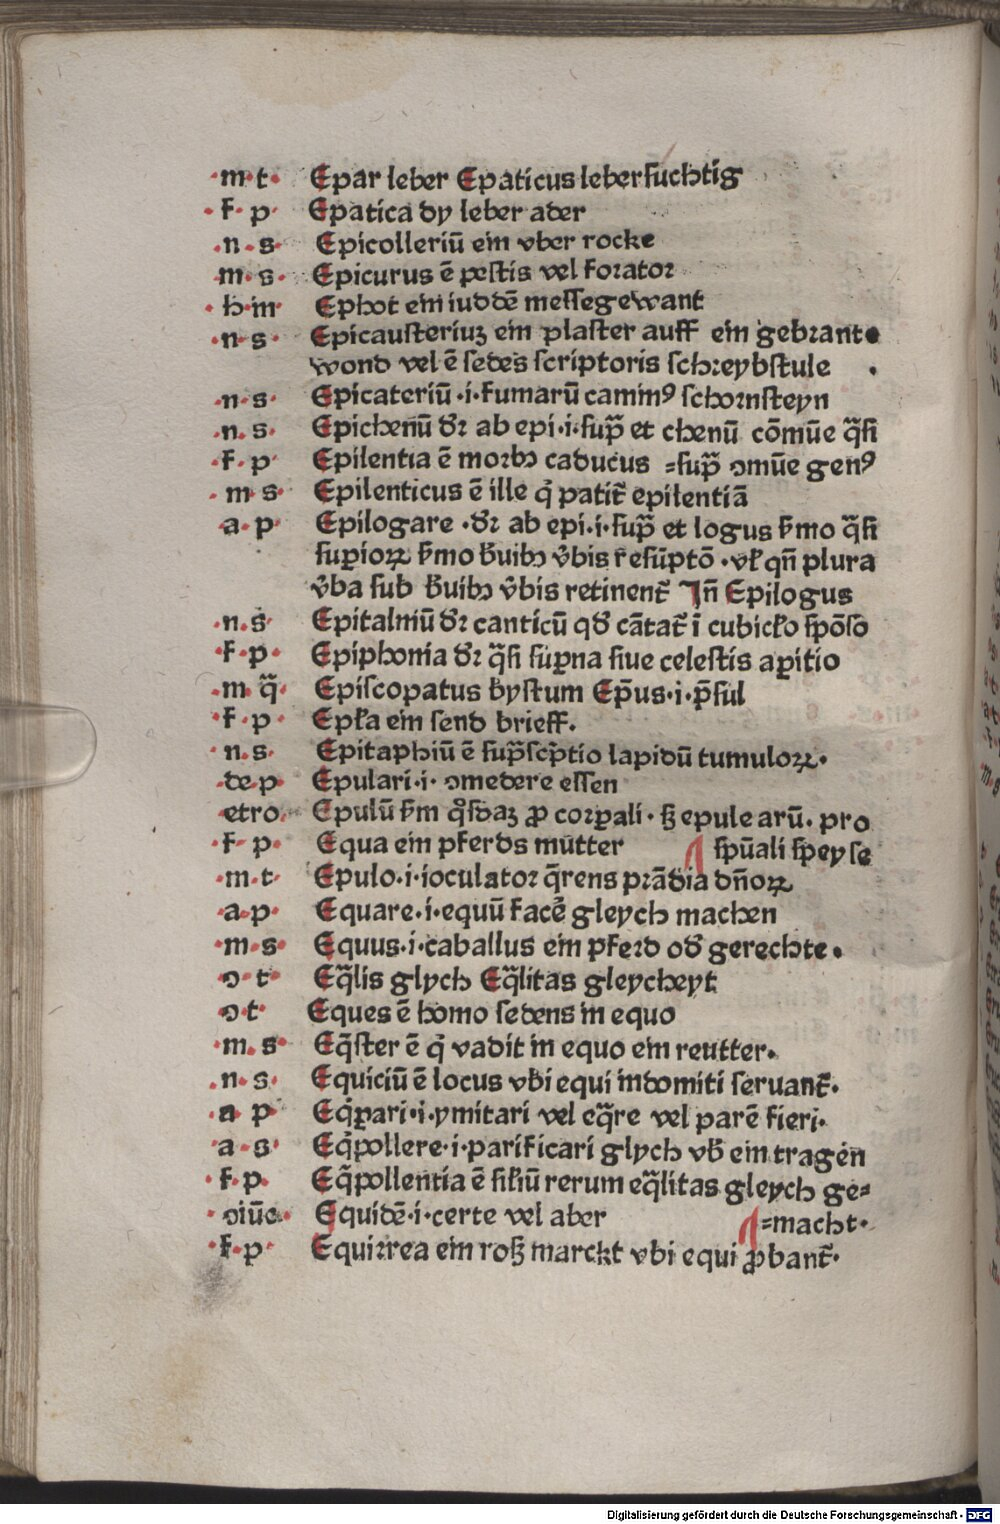 ·m·t· Epar leber Epaticus leberſuchtig
·f·p· Epatica dy leber ader
·n·s· Epicolleriū ein vber rocke
·m·s· Epicurus ē peſtis vel forator
·h·m· Ephot ein iuddē meſſegewant
·n·s· Epicauſteriuꝫ ein plaſter auff ein gebrante
wond vel ē ſedes ſcriptoris ſchreybſtule ·
·n·s· Epicateriū ·i·fumarū caminꝰ ſchornſteyn
·n·s· Epichenū dr̄ ab epi·i·ſup̄ et chenū cōmūe q̄ſi
·f·p· Epilentia ē morbꝫ caducus =ſup̄ ꝯmūe genꝰ
·m·s· Epilenticus ē ille q̇ patit̄ epilentiā
·a·p· Epilogare ·dr̄ ab epi·i·ſup̄ et logus ẜmo q̄ſi
ſuꝑioꝝ ẜmo b̄uibꝫ v̄bis r̄eſūptō ·vł qn̄ plura
v̄ba ſub b̄uibꝫ v̄bis retinent̄ Jn̄ Epilogus
·n·s· Epitalniū dr̄ canticū qď cātat̄ ī cubicło ſpōſo
·f·p· Epiphonia dr̄ q̄ſi ſuꝑna ſiue celeſtis aꝑitio
·m·q̄· Epiſcopatus byſtum Ep̄us·i·p̄ſul
·f·p· Epła ein ſend brieff.
·n·s· Epitaphiū ē ſup̄ſcp̄tio lapidū tumuloꝝ·
·de·p· Epulari·i· ꝯmedere eſſen
etro· Epulū ẜm qͦſdaꝫ ꝓ corꝑali· ſꝫ epule arū· pro
·f·p· Equa ein pferds mūtter ſpūali ſpeyſe
·m·t· Epulo·i·ioculator q̄rens prādia dn̄oꝝ
·a·p· Equare·i·equū facē gleych machen
·m·s· Equus·i·caballus ein pferd oď gerechte·
·ꝯ·t· Eq̄lis glych Eq̄litas gleycheyt
·ꝯ·t· Eques ē homo ſedens in equo
·m·s· Eq̄ſter ē q̇ vadit in equo ein reutter·
·n·s· Equiciū ē locus vbi equi indomiti ſeruant̄·
·a·p· Eq̇ꝑari·i·ymitari vel eq̄re vel parē fieri·
·a·s· Eq̇pollere·i·parificari glych vb̄ ein tragen
·f·p· Eq̇pollentia ē ſiłiū rerum eq̄litas gleych ge=
·ꝯiūc· Equidē·i·certe vel aber =macht·
·f·p· Equirrea ein roſꝫ marckt vbi equi ꝓbant̄·
Digitalisierung gefördert durch die Deutsche Forschungsgemeinschaft - DFG